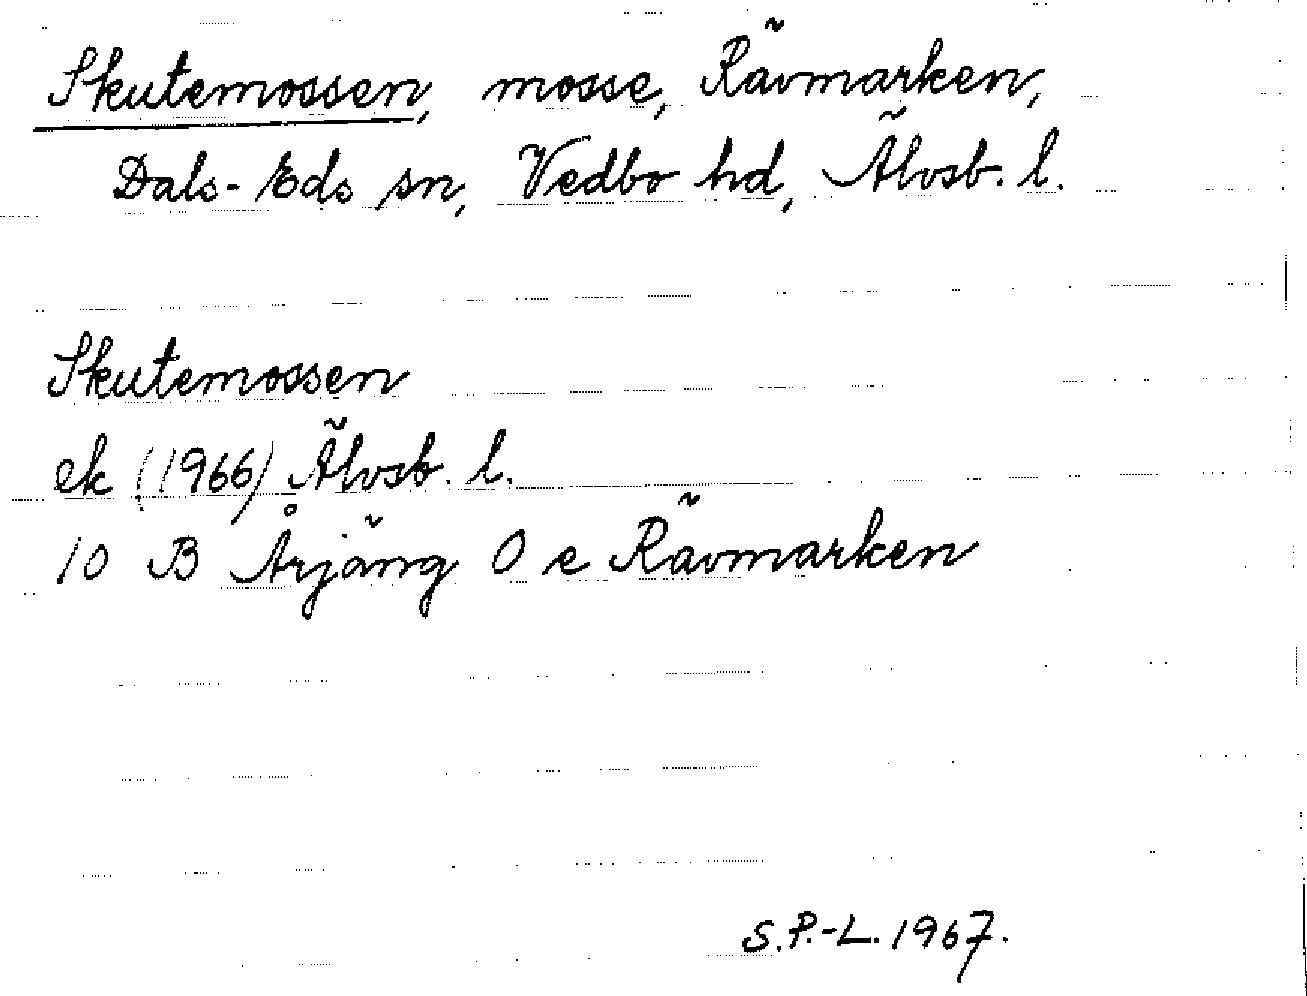 Skutemossen, mosse, Rävmarken,
Dals-Eds sn, Vedbo hd, Älvsb. l.
Skutemossen
ek (1966) Älvsb. l.
10 B Årjäng 0 e Rävmarken
S.P.-L. 1967.